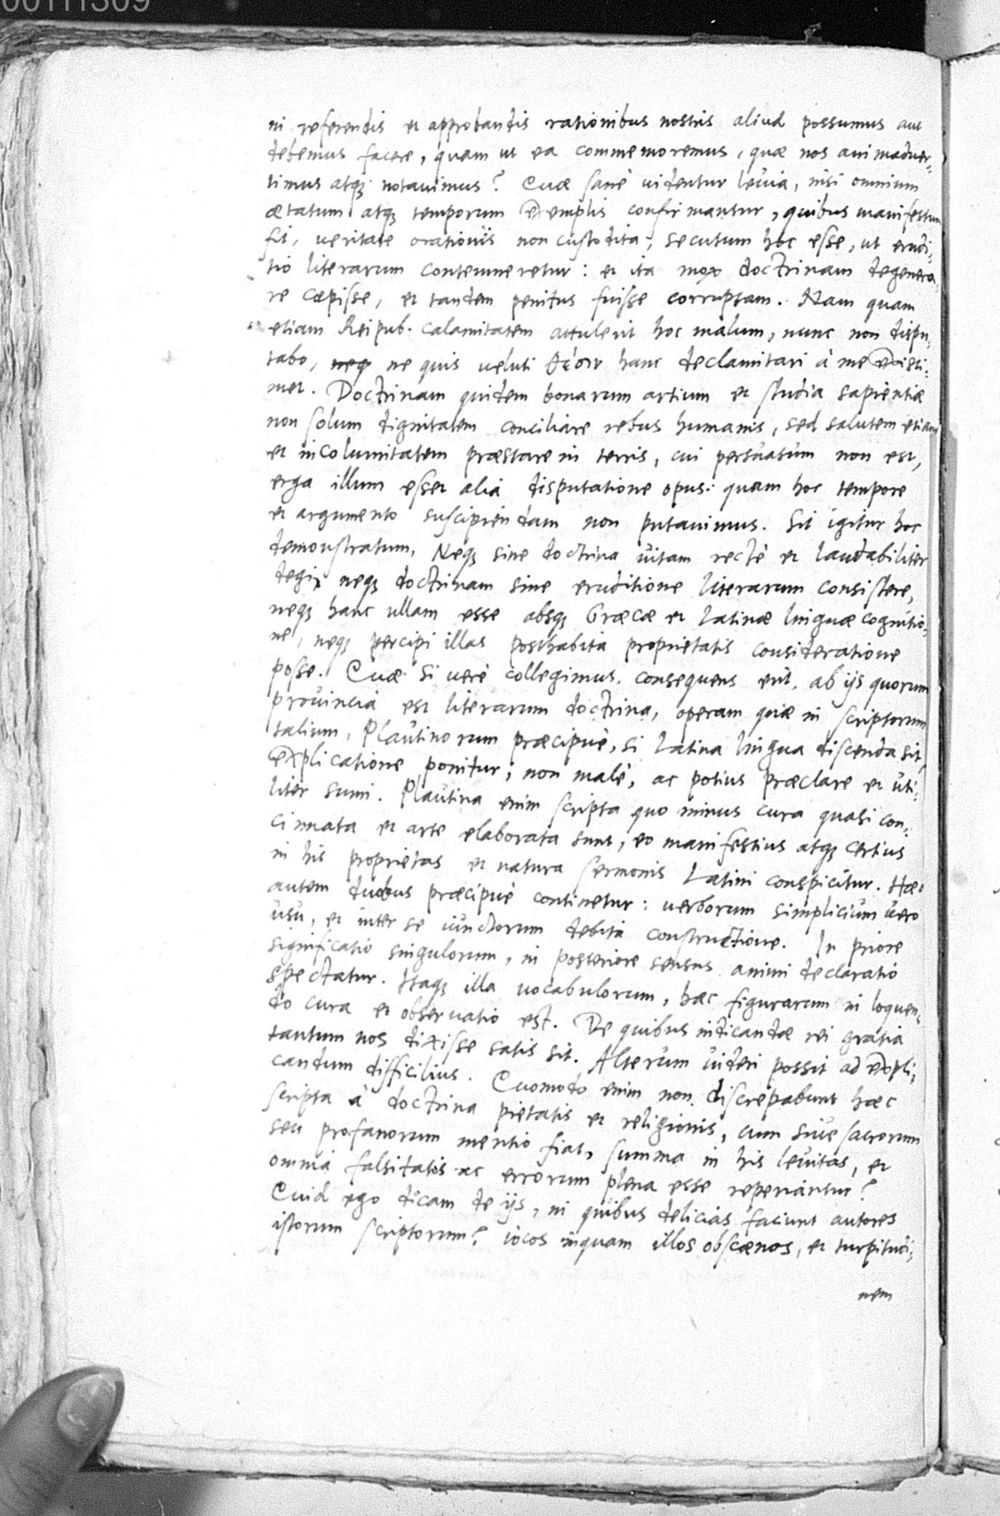 00111309
in referendis et approbandis rationibus nostris aliud possumus aut
debemus facere, quam ut ea commemoremus, quæ nos animaduer-
timus atq; notauimus? Quæ sanè uidentur leuia, nisi omnium
ætatum atq; temporum exemplis confirmantur, quibus manifestum
fit, veritate orationis non custodita, secutum hoc esse, ut erudi-
tio literarum contemneretur: et ita mox doctrinam degenera-
re cœpisse, et tandem penitus fuisse corruptam. Nam quam
etiam Reipub. calamitatem attulerit hoc malum, nunc non dispu-
tabo, neq ne quis veluti hanc declamitari à me existi-
met. Doctrinam quidem bonarum artium et studia sapientiæ
non solum dignitatem conciliare rebus humanis, sed salutem etiam
et incolumitatem præstare in terris, cui persuasum non est,
erga illum esset alia disputatione opus: quam hoc tempore
et argumento suscipiendam non putauimus. Sit igitur hoc
demonstratum, Neq; sine doctrina vitam rectè et laudabiliter
degi, neq; doctrinam sine eruditione literarum consistere,
neq; hanc ullam esse absq; Græcæ et Latinæ linguæ cognitio-
ne, neq; percipi illas posthabita proprietatis consideratione
posse. Quæ si verè collegimus, consequens erit, ab ijs quorum
provincia est literarum doctrina, operam quæ in scriptorum
talium, Plautinorum præcipuè, si Latina lingua discenda sit,
explicatione ponitur, non malè, ac potius præclare et uti-
liter sumi. Plautina enim scripta quo minus cura quasi con-
cinnata et arte elaborata sunt, eo manifestius atq; certius
in his proprietas et natura sermonis Latini conspicitur. Hæc
autem duobus præcipuè continetur: verborum simplicium vero
usu, et inter se iunctorum debita constructione. In priore
significatio singulorum, in posteriore sensus animi declaratio
spectatur. Itaq; illa vocabulorum, hæc figurarum in loquen-
do cura et observatio est. De quibus indicandæ rei gratia
tantum nos dixisse satis sit. Alterum videri possit ad expli-
candum difficilius. Quomodo enim non discrepabunt hæc
scripta à doctrina pietatis et religionis, cum siue sacrorum
seu profanorum mentio fiat, summa in his levitas, et
omnia falsitatis ac errorum plena esse reperiantur?
Quid ego dicam de ijs, in quibus delicias faciunt autores
istorum scriptorum? iocos inquam illos obscænos, et turpitudi-
nem